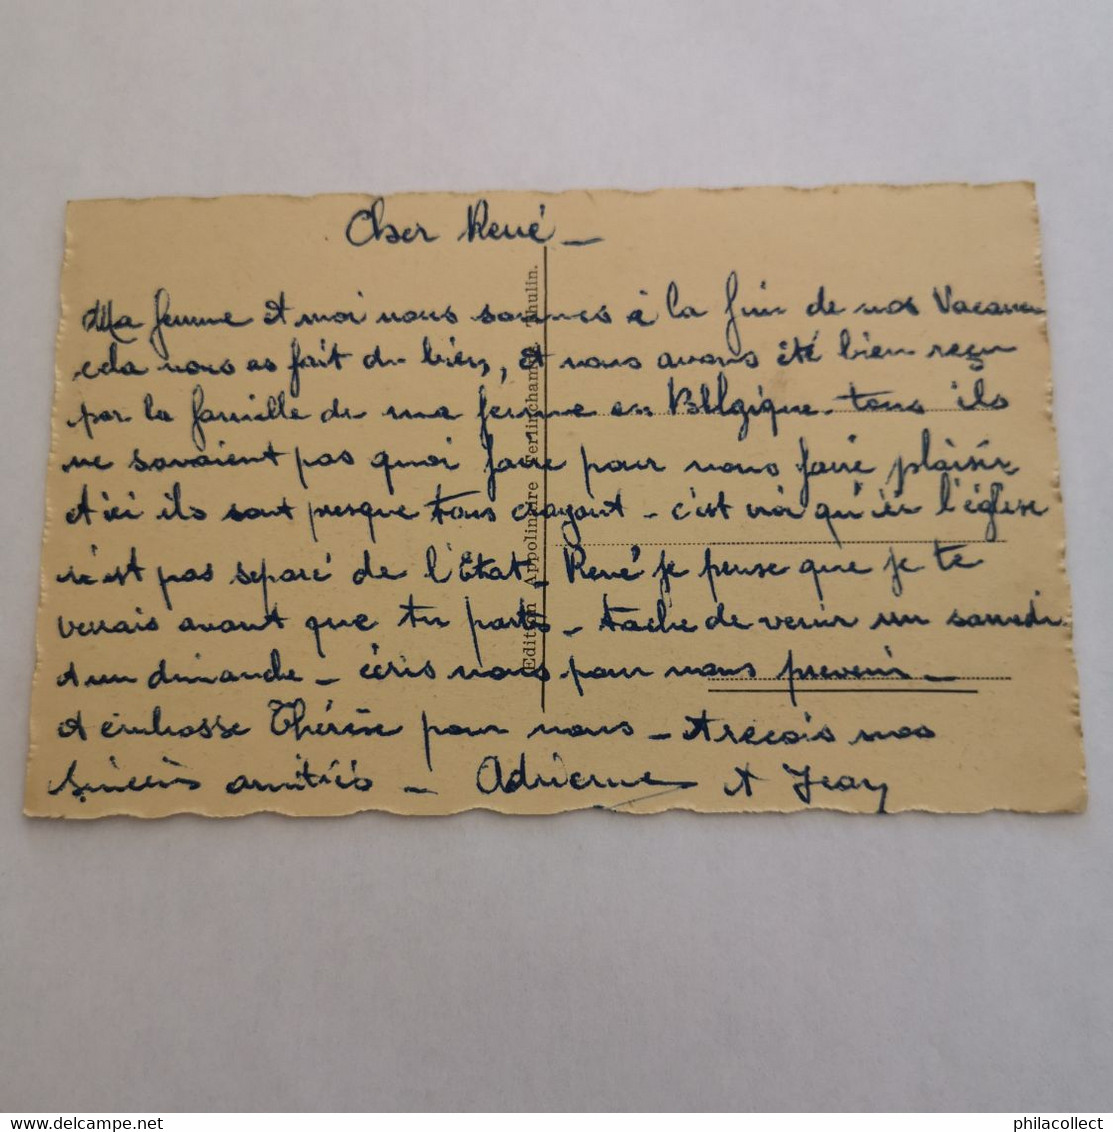 Cher René _
Ma femme et moi nous sommes à la fin de nos Vacances
cela nous as fait du bien, et nous avons été bien reçu
par la famille de ma femme en Bllgique. tous ils
ne savaient pas quoi faire pour nous faire plaisir
et ici ils sont presque tous croyant _ c'est vrai qu'ici l'église
n'est pas separé de l'Etat _ René je pense que je te
verrais avant que tu partes _ tache de venir un samedi
et un dimanche _ écris nous pour nous prevenir _
et embrasse Thérèse pour nous _ et reçois nos
sincères amitiés _ Adrienne et Jean
Edition Appolinaire Terlinchamp, Thulin.
philacollect